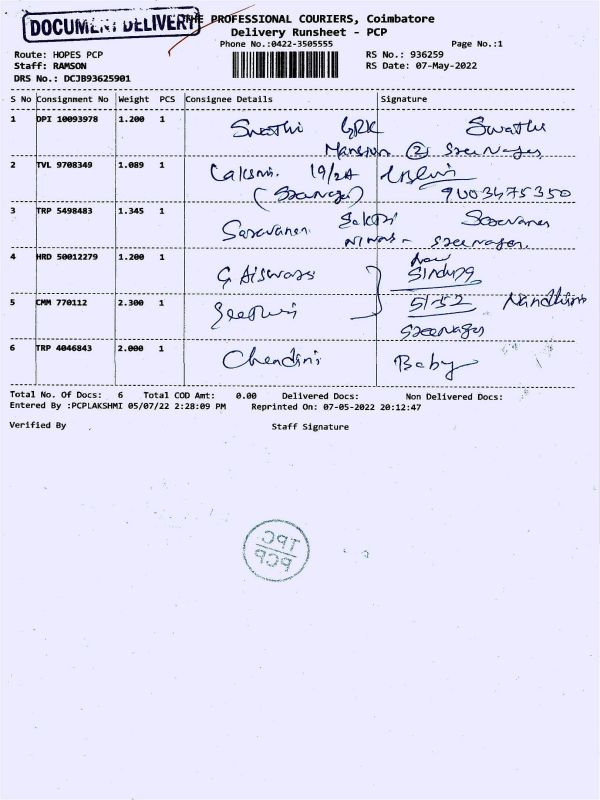 DOCUMENT DELIVERY
THE PROFESSIONAL COURIERS, Coimbatore
Delivery Runsheet - PCP
Phone No.:0422-3505555 Page No.:1
Route: HOPES PCP RS No.: 936259
Staff: RAMSON RS Date: 07-May-2022
DRS No.: DCJB93625901
S No Consignment No Weight PCS Consignee Details Signature
1 DPI 10093978 1.200 1 Swathi GRK Swathi
Mansion 2 Sree Nagar
2 TVL 9708349 1.089 1 Laksmi. 19/2A
(Sreenagar) 9003475350
3 TRP 5498483 1.345 1 Saravanan Sakthi Saravanan
Sree Nagar.
4 HRD 50012279 1.200 1 G Aiswarya New
Sindhya
5 CMM 770112 2.300 1 51-52 Nandhini
Sreenagar
6 TRP 4046843 2.000 1 Chandini Baby
Total No. Of Docs: 6 Total COD Amt: 0.00 Delivered Docs: Non Delivered Docs:
Entered By :PCPLAKSHMI 05/07/22 2:28:09 PM Reprinted On: 07-05-2022 20:12:47
Verified By Staff Signature
TPC
PCP